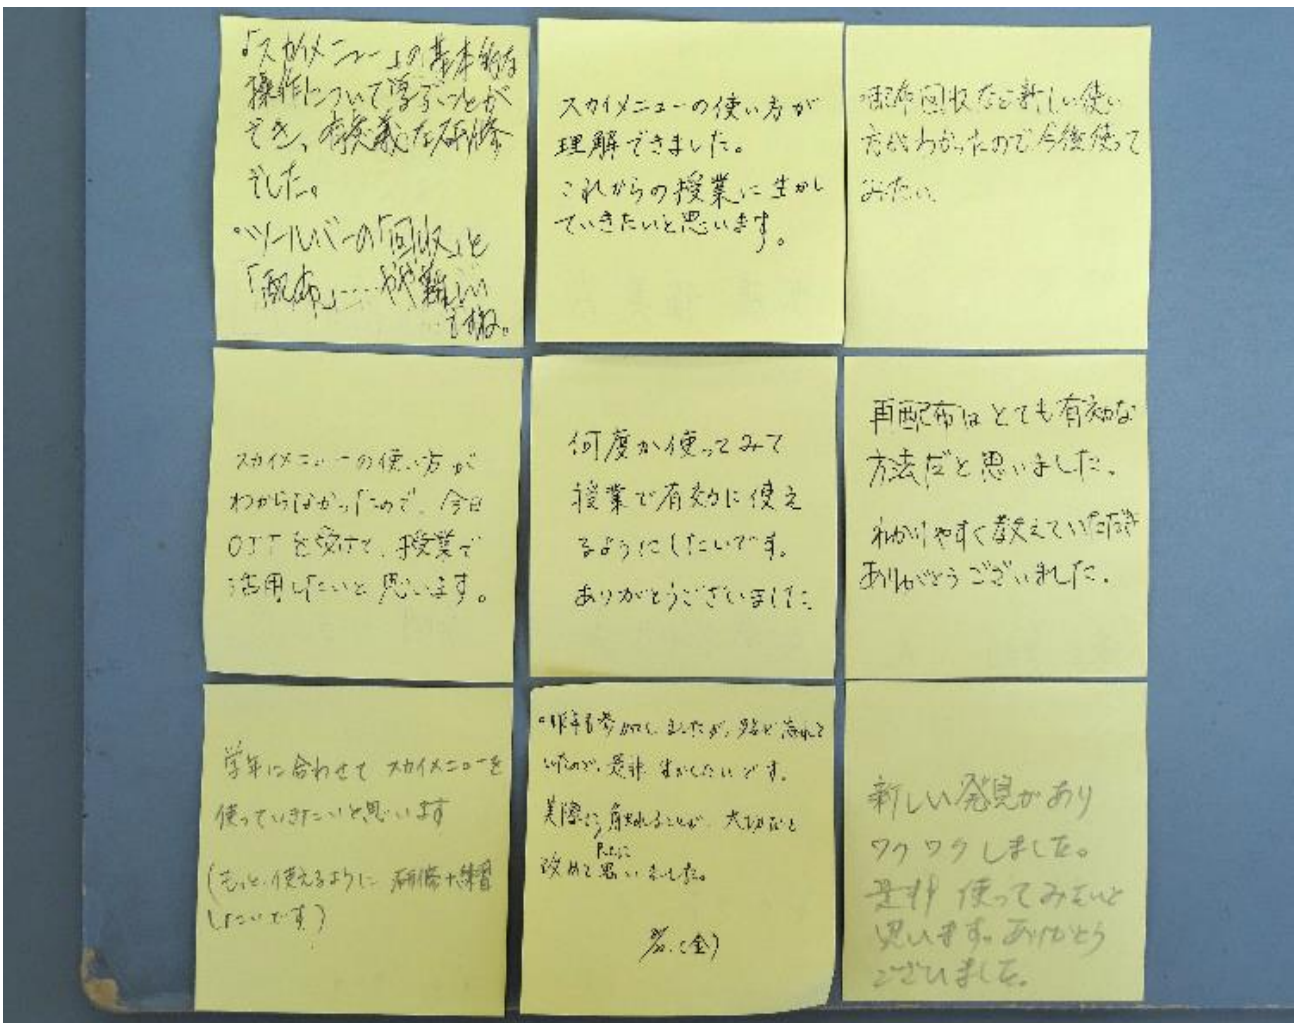 ・「スカイメニュー」の基本的な
操作について学ぶことが
でき、有意義な研修
でした。
・ツールバーの「回収」と
「配布」……やや難しい
ですね。
スカイメニューの使い方が
理解できました。
これからの授業に生かし
ていきたいと思います。
配布回収など新しい使い
方がわかったので今後使って
みたい。
スカイメニューの使い方が
わからなかったので、今日
OJTを受けて、授業で
活用したいと思います。
何度か使ってみて
授業で有効に使え
るようにしたいです。
ありがとうございました
再配布はとても有効な
方法だと思いました。
わかりやすく教えていただき
ありがとうございました。
学年に合わせて スカイメニューを
使っていきたいと思います
(もっと使えるように 研修+練習
したいです)
・昨年も参加しましたが、殆ど忘れて
いたので、是非 生かしたいです。
実際に触れることが、大切だと
改めて思いました。
(金)
新しい発見があり
ワクワクしました。
是非 使ってみたいと
思います。ありがとう
ございました。